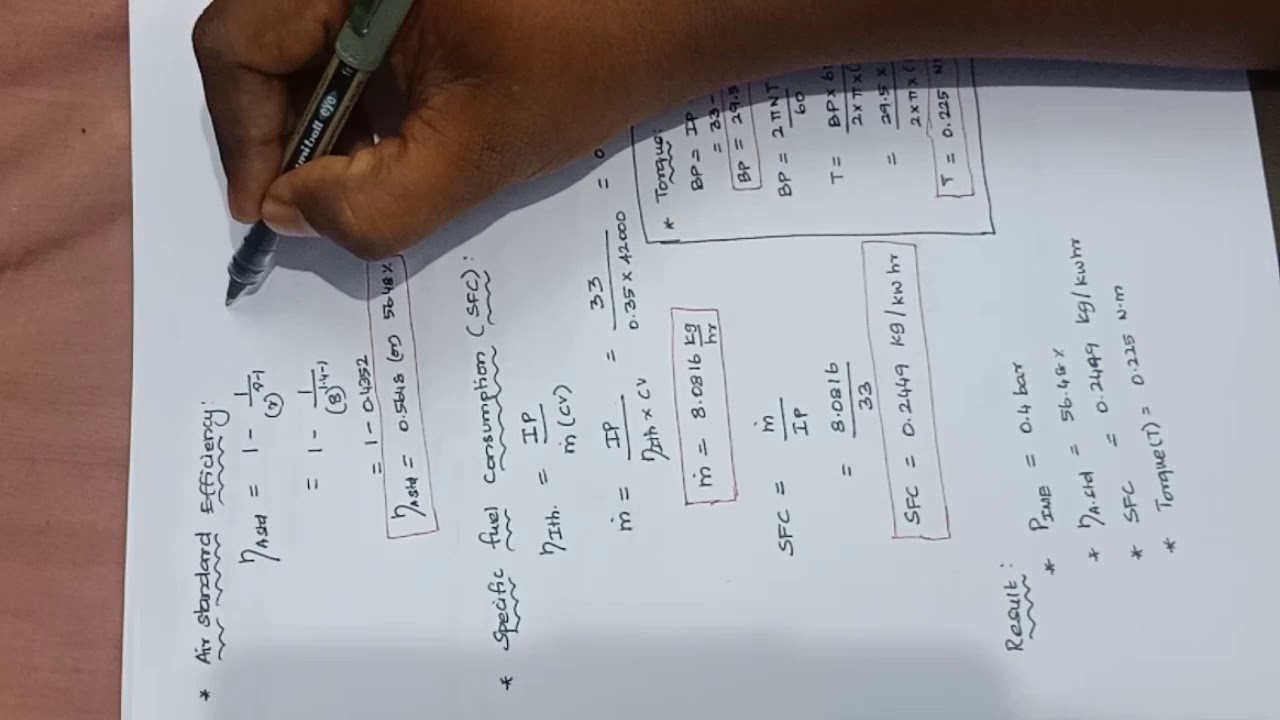 * Air standard Efficiency:
η_A std = 1 - 1/(r)^γ-1
= 1 - 1/(8)^1.4-1
= 1 - 0.4352
η_A std = 0.5648 (or) 56.48%
* Specific fuel Consumption (SFC):
η_Ith. = IP/ṁ(CV)
ṁ = IP/η_Ith × CV = 33/0.35 × 42000 = 0
ṁ = 8.0816 kg/hr
SFC = ṁ/IP
= 8.0816/33
SFC = 0.2449 kg/kw hr
* Torque:
BP = IP
= 33 -
BP = 29.5
BP = 2πNT/60
T = BP × 6/2×π×(
= 29.5 ×/2×π×(
T = 0.225 N
Result:
* P_IME = 0.4 bar
* η_A.std = 56.48%
* SFC = 0.2499 kg/kw hr
* Torque(T) = 0.225 N.m
uniball eye